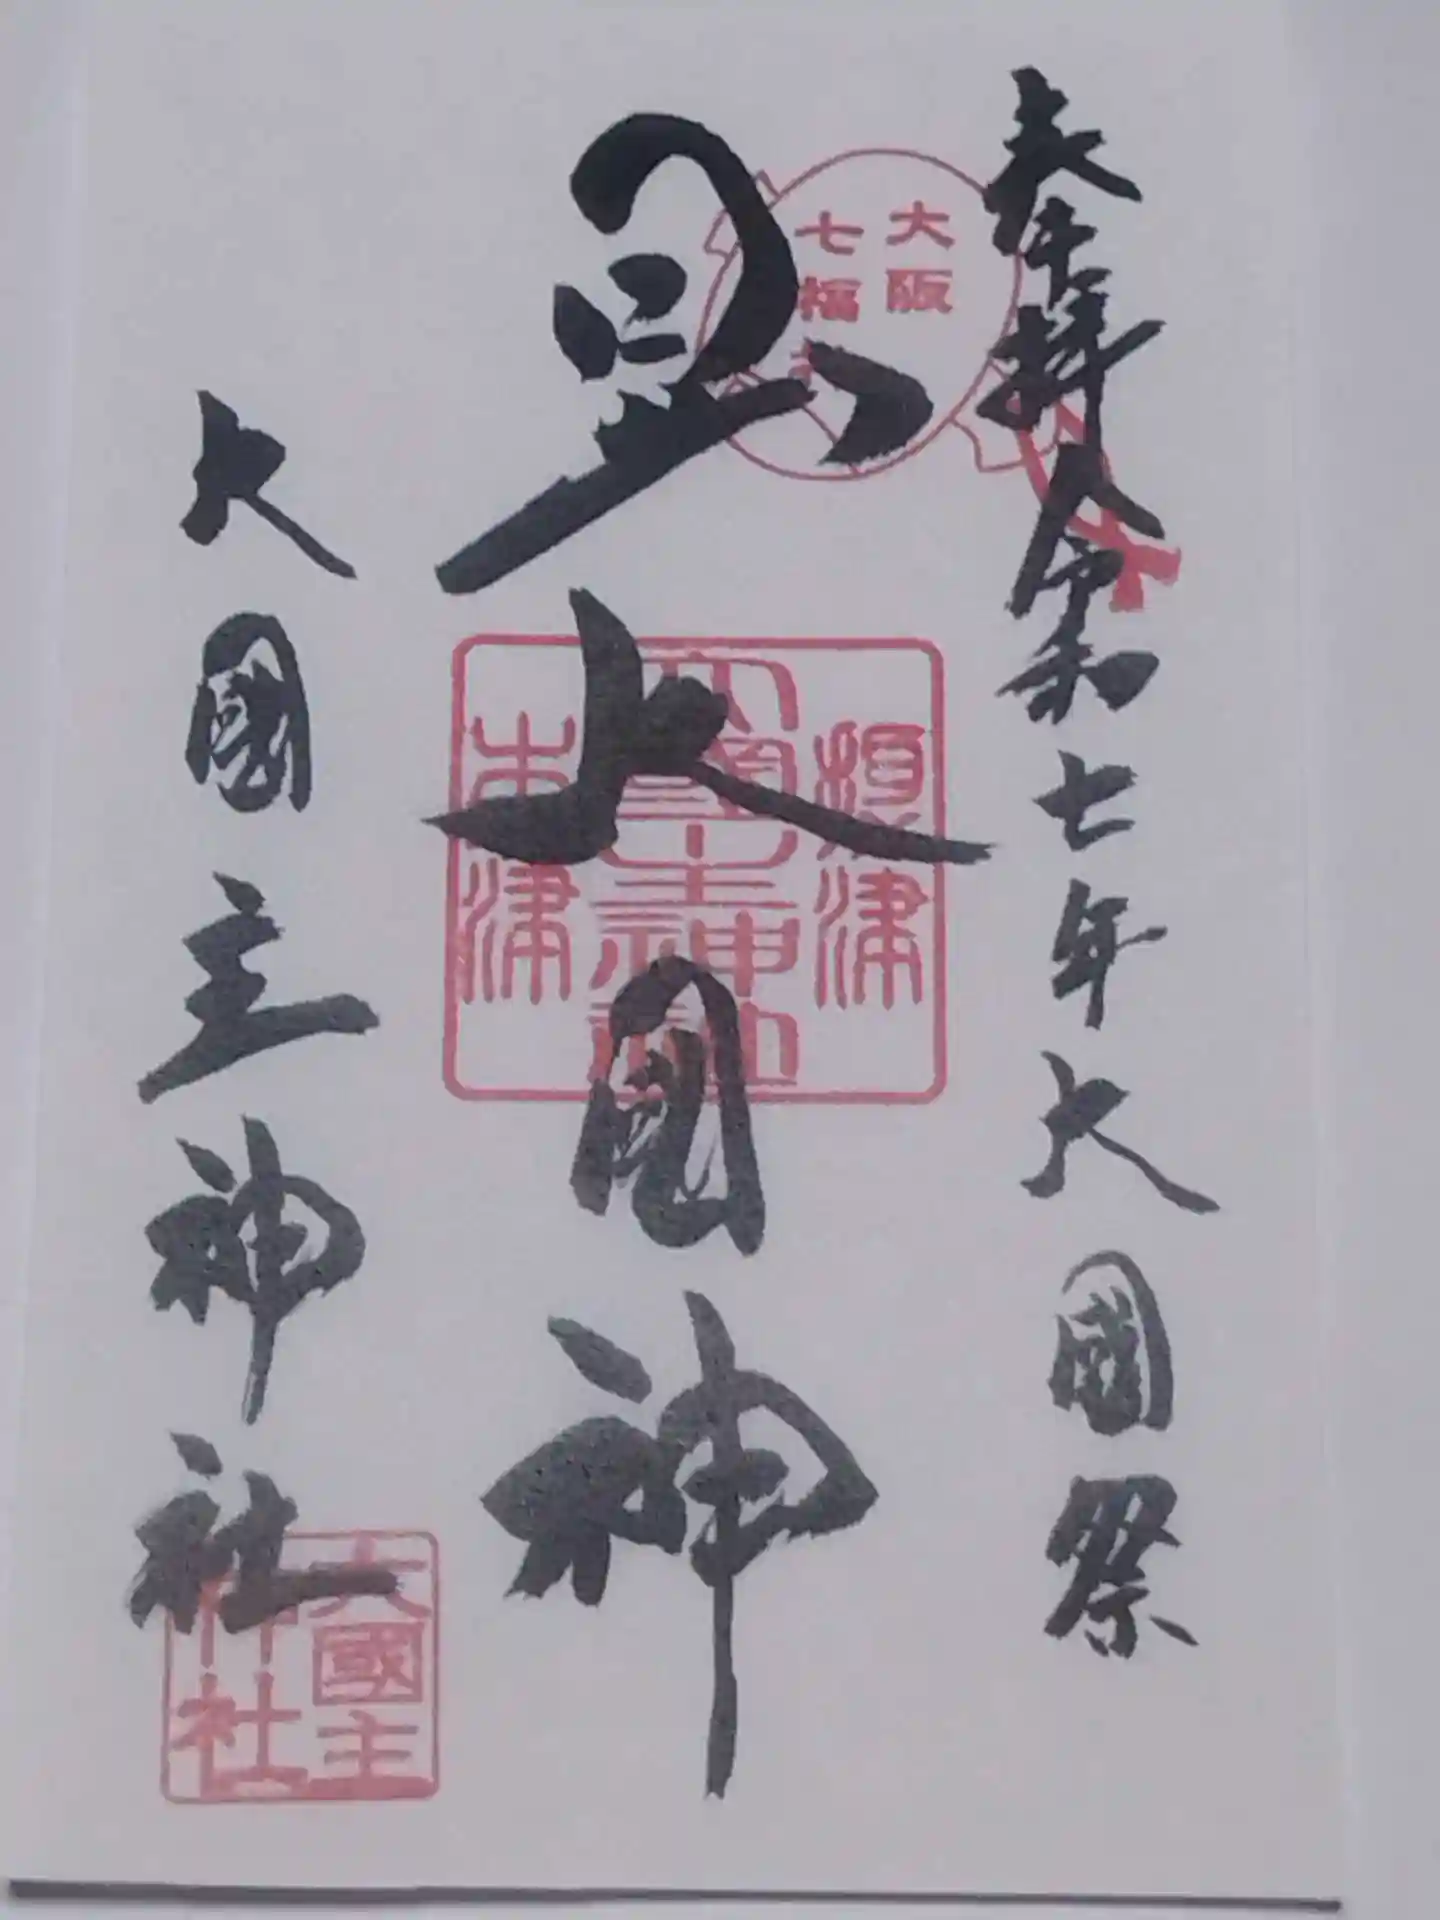 奉拝 令和七年大國祭
大阪
七福
大国神
摂津
大國主神社
木津
大國主神社
大國主
神社